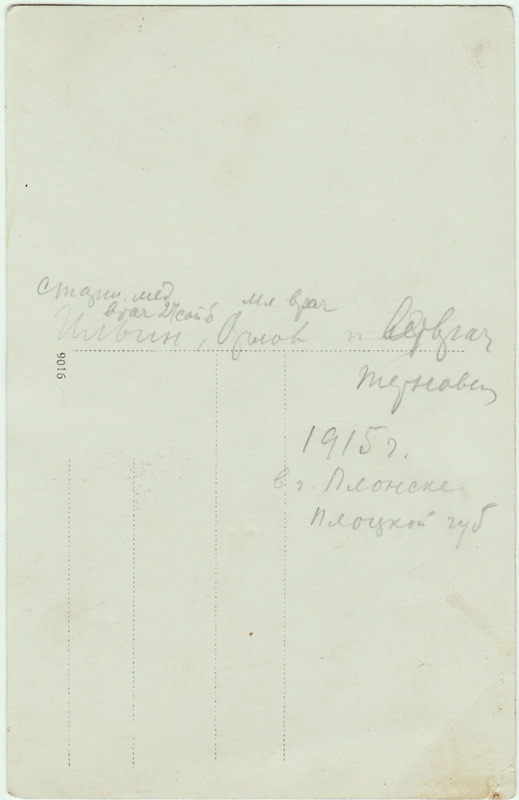 старш. мед
врач 27 сап б мл врач
Ильин, Орлов и Ветврач
Терновец
9016
1915 г.
в г. Плонске
Плоцкой губ